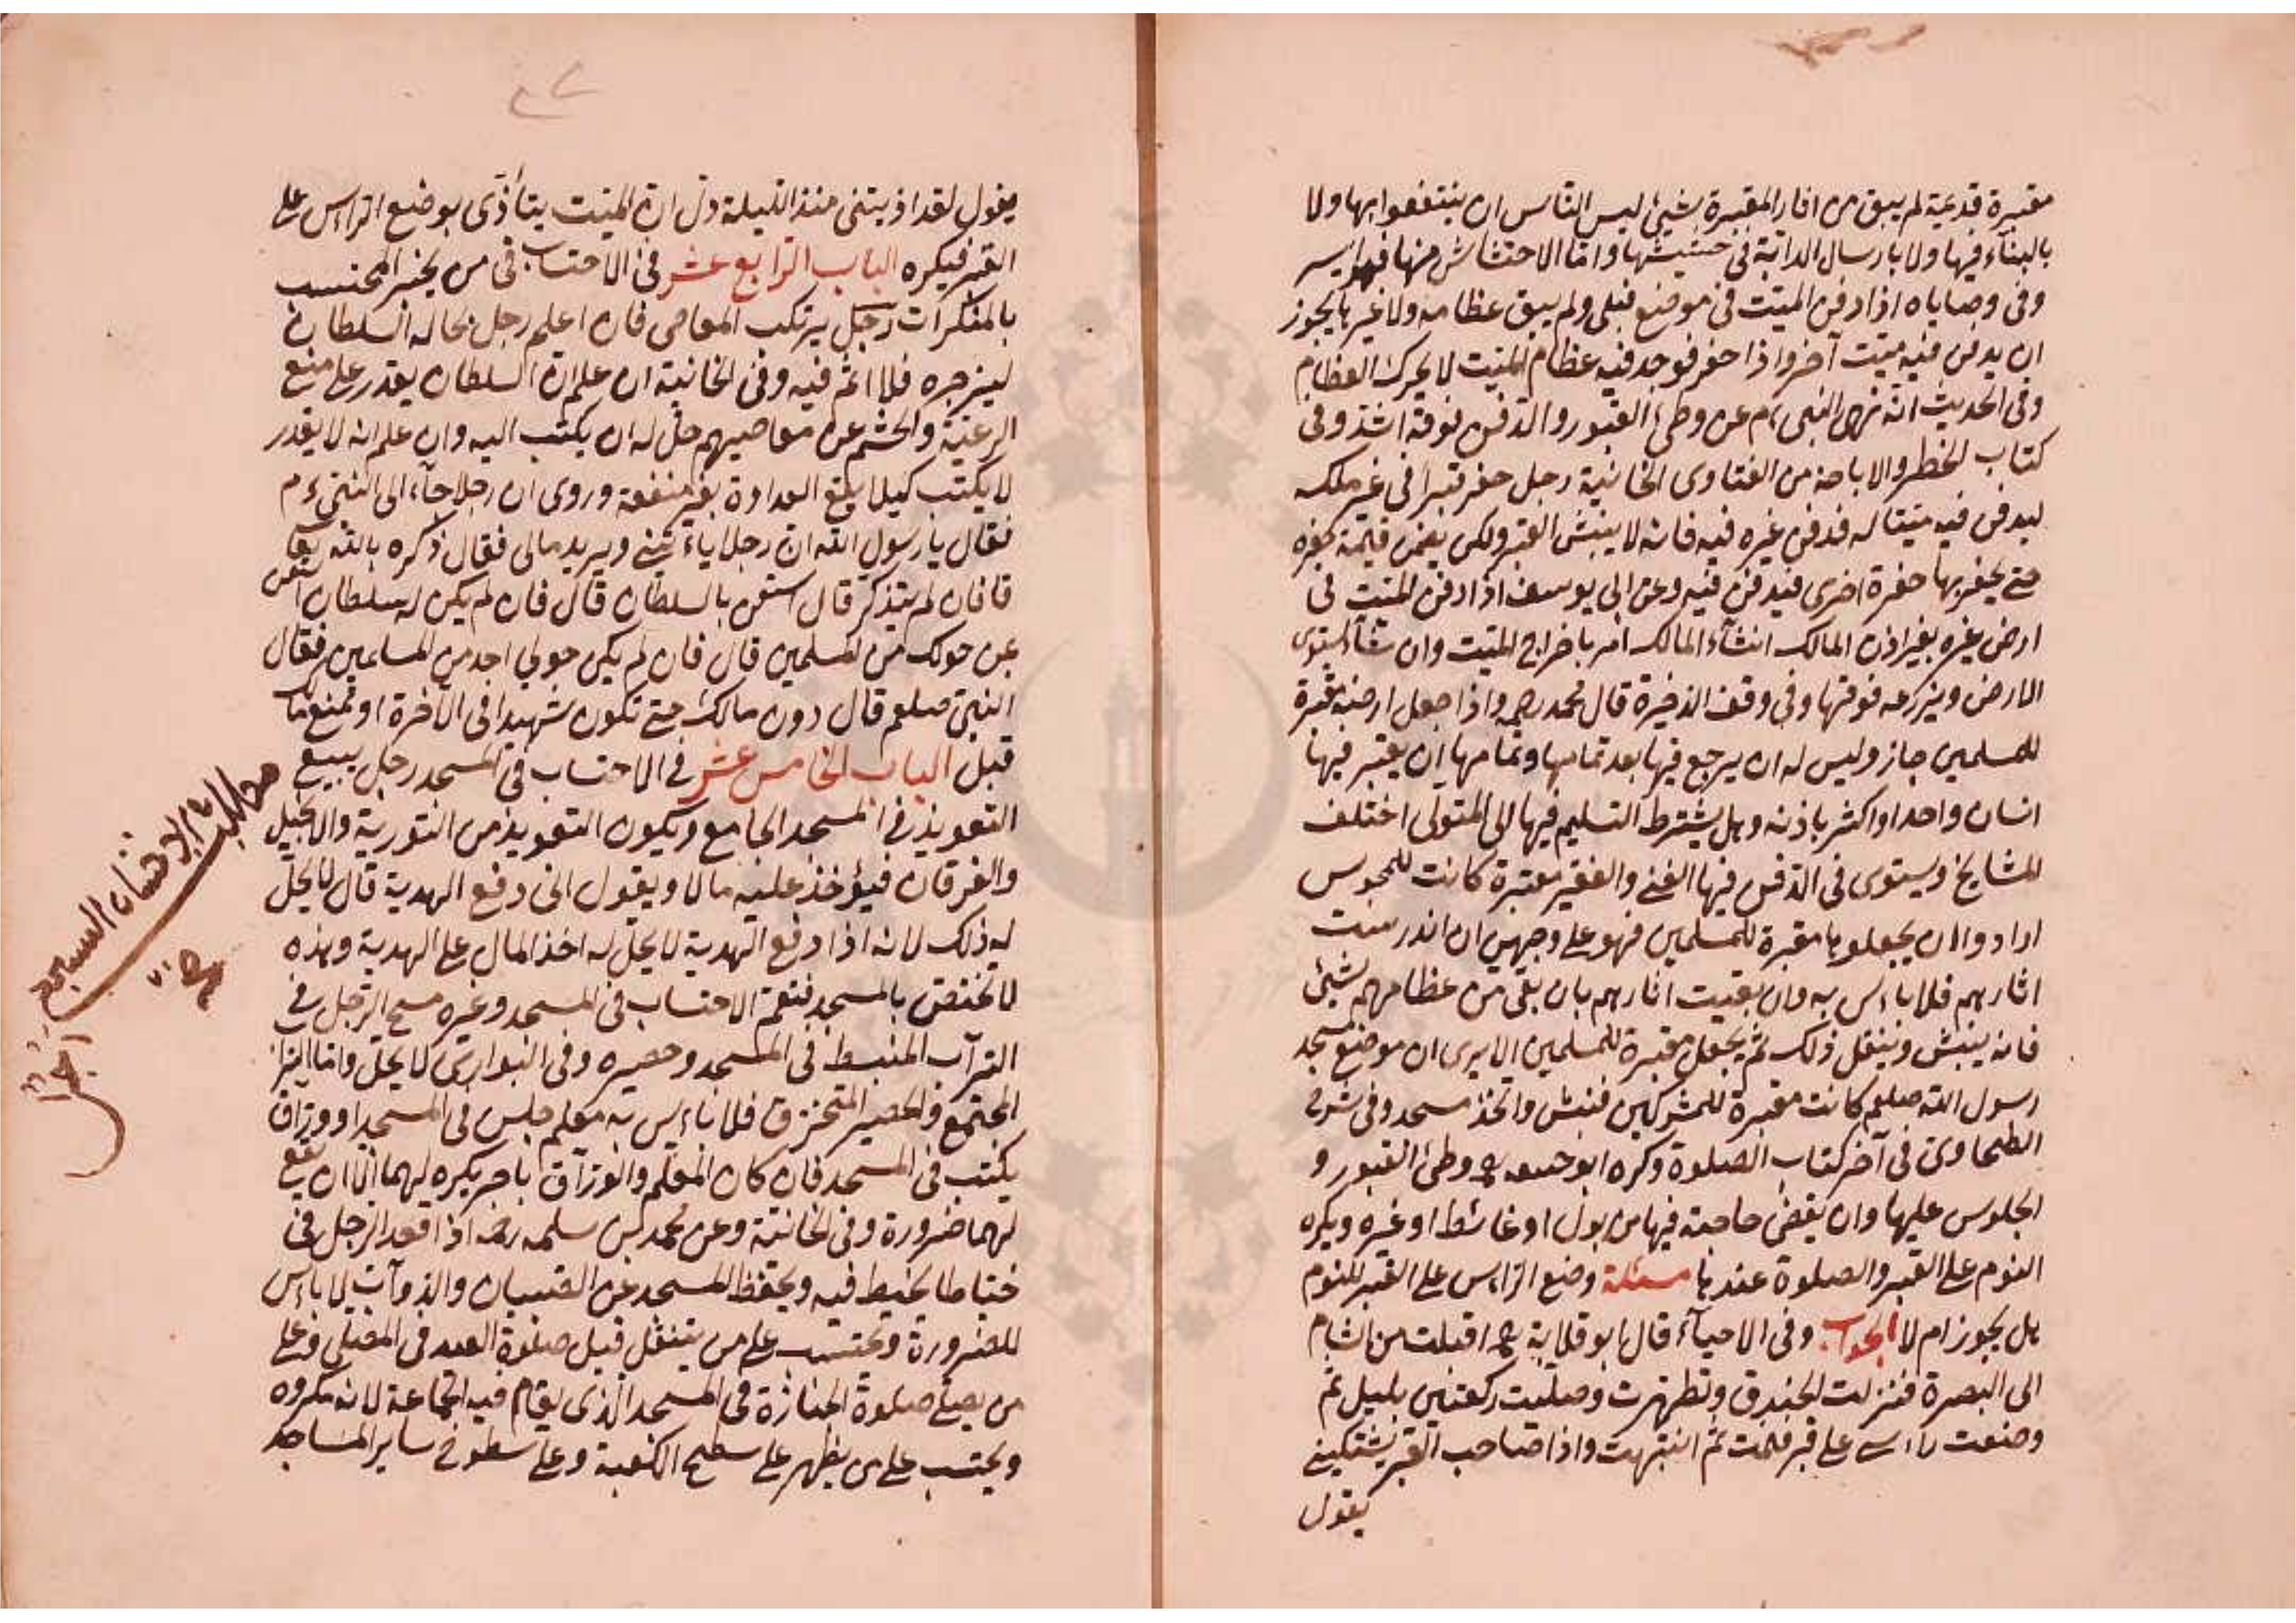 مقبرة قديمة لم يبق من اثار المقبرة شيئ ليس للناس ان ينتفعوا بها ولا
بالبناء فيها ولا بارسال الدابة في حشيشها واما الاحتشاش منها فهو ايسر
وفى وصاياه اذا دفن الميت في موضع فبلى ولم يبق عظامه ولا غيرها يجوز
ان يدفن فيه ميت آخر واذا حفر فوجد فيه عظام الميت لا يحرك العظام
وفى الحديث انه نهى النبى ءم عن وطئ القبور والدفن فوقه اشد وفى
كتاب الحظر والاباحة من الفتاوى الخانية رجل حفر قبرا في غير ملكه
ليدفن فيه ميتا له فدفن غيره فيه فانه لا ينبش القبر ولكن يضمن قيمة حفره
حتى يحفر بها حفرة اخرى فيدفن فيه وعن ابى يوسف اذا دفن الميت في
ارض غيره بغير اذن المالك انشاء المالك امر باخراج الميت وان شاء استوى
الارض ويزرعه فوقها وفي وقف الذخيرة قال محمد رحمه واذا جعل ارضه مقبرة
للمسلمين جاز وليس له ان يرجع فيها بعد تمامها وتمامها ان يقبر فيها
انسان واحد او اكثر باذنه وهل يشترط التسليم فيها الى المتولى اختلف
المشايخ ويستوى في الدفن فيها الغنى والفقير مقبرة كانت للمجوس
ارادوا ان يجعلوها مقبرة للمسلمين فهو على وجهين ان اندرست
اثارهم فلا باءس به وان بقيت اثارهم بان بقى من عظامهم شيئ
فانه ينبش وينقل ذلك ثم يجعل مقبرة للمسلمين الا يرى ان موضع مسجد
رسول الله صلعم كانت مقبرة للمشركين فنبش واتخذ مسجد وفى شرح
الطحاوى في آخر كتاب الصلوة وكره ابو حنيفه وطئ القبور و
الجلوس عليها وان يقضى حاجته فيها من بول او غائط او غيره ويكره
النوم على القبر والصلوة عندها مسئلة وضع الراءس على القبر للنوم
هل يجوز ام لا الجواب وفى الاحياء قال ابو قلابة اقبلت من الشام
الى البصرة فنزلت الخندق وتطهرت وصليت ركعتين بليل ثم
وضعت راءسى على قبر فنمت ثم انتبهت واذا صاحب القبر يشتكينى
يقول
يقول لقد اذيتنى منذ الليلة دل ان الميت يتأذى بوضع الراس على
القبر فيكره الباب الرابع عشر في الاحتساب في من يخبر المحتسب
بالمنكرات رجل يرتكب المعاصى فان اعلم رجل بحاله السلطان
ليزجره فلا اثم فيه وفى الخانية ان علم ان السلطان يقدر على منع
الرعية والحشم عن معاصيهم حل له ان يكتب اليه وان علم انه لا يقدر
لا يكتب كيلا يقع العداوة بغير منفعة وروى ان رجلا جاء الى النبى ءم
فقال يا رسول الله ان رجلا ياءتينى ويريد مالى فقال ذكره بالله تعالى
قا فان لم يتذكر قال استعن بالسلطان قال فان لم يكن له سلطان استعن
عن حولك من المسلمين قال فان لم يكن حولي احد من المسلمين فقال
النبى صلعم قال دون مالك حتى تكون شهيدا في الآخرة او تمنع مالك
قبل الباب الخامس عشر في الاحتساب في المسجد رجل يبيع
التعويذ في المسجد الجامع ويكون التعويذ من التورية والانجيل
والفرقان فيؤخذ عليه مالا ويقول انى دفع الهدية قال لا يحل
له ذلك لانه اذا دفع الهدية لا يحل له اخذ المال على الهدية وهذه
لا تختص بالمسجد فتعم الاحتساب في المسجد وغيره مسح الرجل في
التراب المنبسط في المسجد وحصيره وفى البوارى لا يحل واما الترا
المجتمع والحصير المتخرق فلا باءس به معلم جلس في المسجد او وراق
يكتب في المسجد فان كان المعلم والوراق باجر يكره لهما الا ان يقع
لهما ضرورة وفى الخانية وعن محمد بن سلمه رحه اذا قعد الرجل في
خياطا يخيط فيه ويحفظ المسجد عن الصبيان والدوآب لا باءس
للضرورة ويحتسب على من يتنفل قبل صلوة العيد في المصلى وعلى
من يصلى صلوة الجنازة في المسجد الذى يقام فيه الجماعة لانه مكروه
ويحتسب على من يظهر على سطح الكعبة وعلى سطوح ساير المساجد